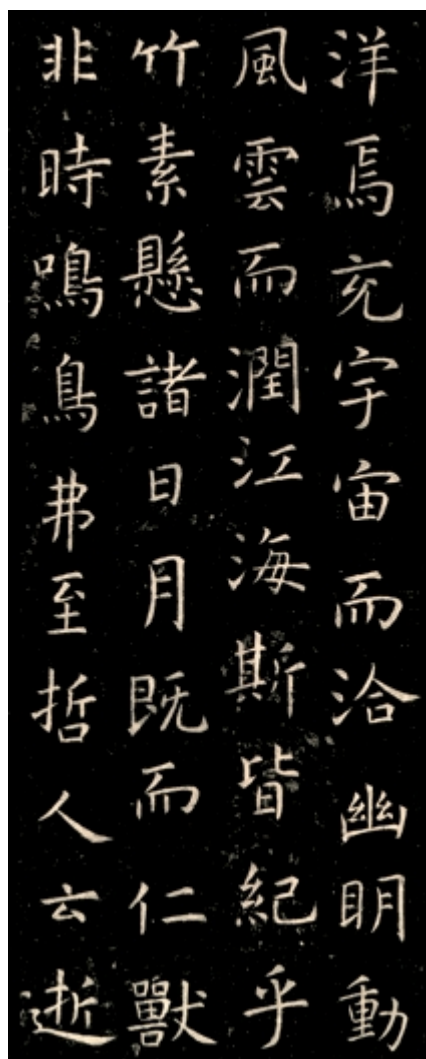 洋焉充宇宙而洽幽明動
風雲而潤江海斯皆紀乎
竹素懸諸日月既而仁獸
非時鳴鳥弗至哲人云逝